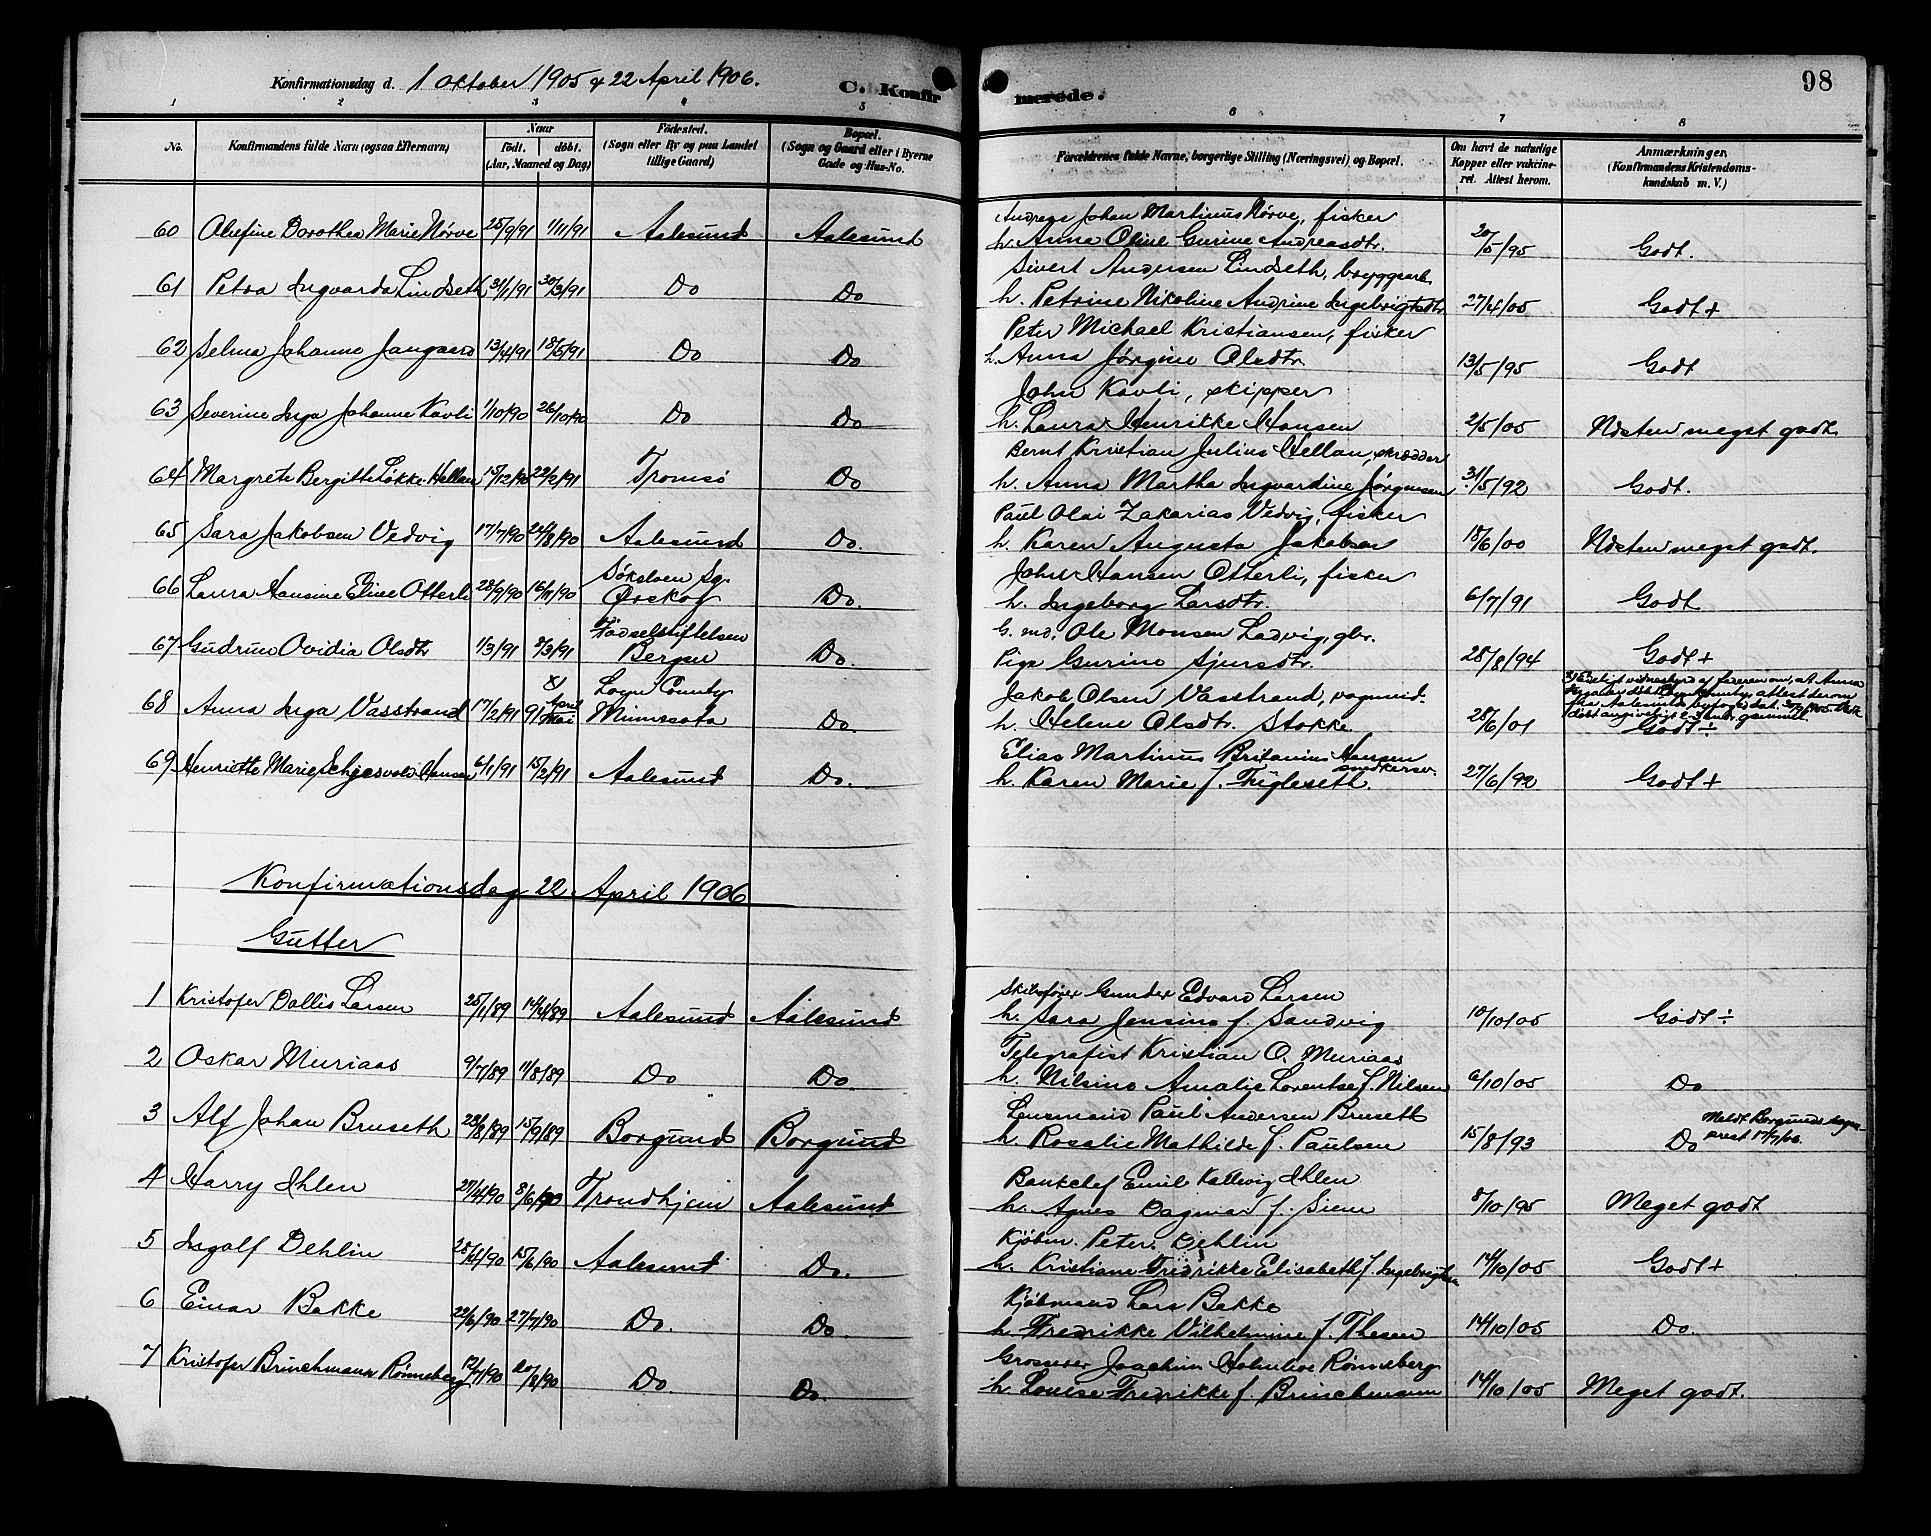 98
Konfirmationsdag d. 1 Oktober 1905 & 22 April 1906.
C. Konfirmerede.
1 2 3 4 5 6 7 8
No.
Konfirmandens fulde Navn (ogsaa Efternavn)
Naar
födt. döbt.
(Aar, Maaned og Dag)
Födested.
(Sogn eller By og paa Landet
tillige Gaard)
Bopæl.
(Sogn og Gaard eller i Byerne
Gade og Hus-No.
Forældrenes fulde Navne, borgerlige Stilling (Næringsvei) og Bopæl.
Om havt de naturlige
Kopper eller vakcineret. Attest herom.
Anmærkninger.
(Konfirmandens Kristendomskundskab m. V.)
60 Olufine Dorothea Marie Nörve 25/9/91 1/11/91 Aalesund Aalesund Andreas Johan Martinus Nörve, fisker
h. Anna Oline Gurine Andreasdtr. 20/5/95 Godt.
61 Petra Ingvarda Lindseth 31/1/91 30/3/91 Do Do Sivert Andersen Lindseth, bryggearb.
h. Petrine Nikoline Andrine Ingebrigtsdtr 27/4/05 Godt +
62 Selma Johanne Jangaard 13/4/91 18/5/91 Do Do Peter Michael Kristiansen, fisker
h. Anna Jørgine Olsdtr 13/5/95 Godt
63 Severine Inga Johanne Kavli 1/10/90 26/10/90 Do Do John Kavli, skipper
h. Laura Henrikke Hansen 2/5/05 Næsten meget godt
64 Margrete Bergitte Løkke Hellan 15/12/90 22/2/91 Tromsö Do Bernt Kristian Julius Hellan, skrædder
h. Anna Martha Ingvardine Jörgensen 31/5/92 Godt.
65 Sara Jakobsen Vedvig 17/7/90 24/8/90 Aalesund Do. Paul Olai Zakarias Vedvig, fisker
h. Karen Augusta Jakobsen 18/6/00 Næsten meget godt.
66 Laura Hansine Eline Otterli 28/9/90 16/11/90 Sökelven Sg. Ørskog Do. John Hansen Otterli, fisker
h. Ingeborg Larsdtr. 6/7/91 Godt
67 Gudrun Ovidia Olsdtr 1/3/91 8/3/91 Födselstiftelsen Bergen Do. G. md. Ole Monsen Ladvig, gbr.
Pige Gurine Sjursdtr. 28/8/94 Godt +
68 Anna Inga Vasstrand 17/2/91 91 April Mai Lyon County Minnesota Do. Jakob Olsen Vasstrand, vognmd.
h. Helene Olsdtr. Stokke 28/6/01 Godt ÷
69 Henriette Marie Schjesvold Hansen 6/1/91 15/2/91 Aalesund Do. Elias Martinus Britanius Hansen snedkersv.
h. Karen Marie f. Fugleseth. 27/6/92 Godt +
Konfirmationsdag 22 April 1906
Gutter
1 Kristofer Dallis Larsen 25/1/89 14/4/89 Aalesund Aalesund Skibsfører Gunder Edvard Larsen
h. Sara Jensine f. Sandvig 10/10/05 Godt ÷
2 Oskar Muriaas 9/7/89 11/8/89 Do Do. Telegrafist Kristian O. Muriaas
h. Nilsine Amalie Lorentse f. Nilsen 6/10/05 Do
3 Alf Johan Bruseth 28/8/89 15/9/89 Borgund Borgund Lensmand Paul Andersen Bruseth
h. Rosalie Mathilde f. Paulsen 15/8/93 Do Meldt Borgunds sogneprest 17/7/06.
4 Harry Ihlen 27/4/90 8/6/90 Trondhjem Aalesund Bankchef Emil Kallevig Ihlen
h. Agnes Dagmar f. Siem 8/10/95 Meget godt
5 Ingolf Dehlin 28/4/90 15/6/90 Aalesund Do. Kjöbm. Peter Dehlin
h. Kristiane Fredrikke Elisabeth f. Ingebrigtsen 14/10/05 Godt +
6 Einar Bakke 22/6/90 27/7/90 Do. Do. Kjöbmand Lars Bakke
h. Fredrikke Vilhelmine f. Thesen 14/10/05 Do.
7 Kristofer Brinchmann Rønneberg 12/7/90 20/8/90 Do. Do. Grosserer Joachim Holmboe Rönneberg
h. Louise Fredrikke f. Brinchmann 14/10/05 Meget godt.